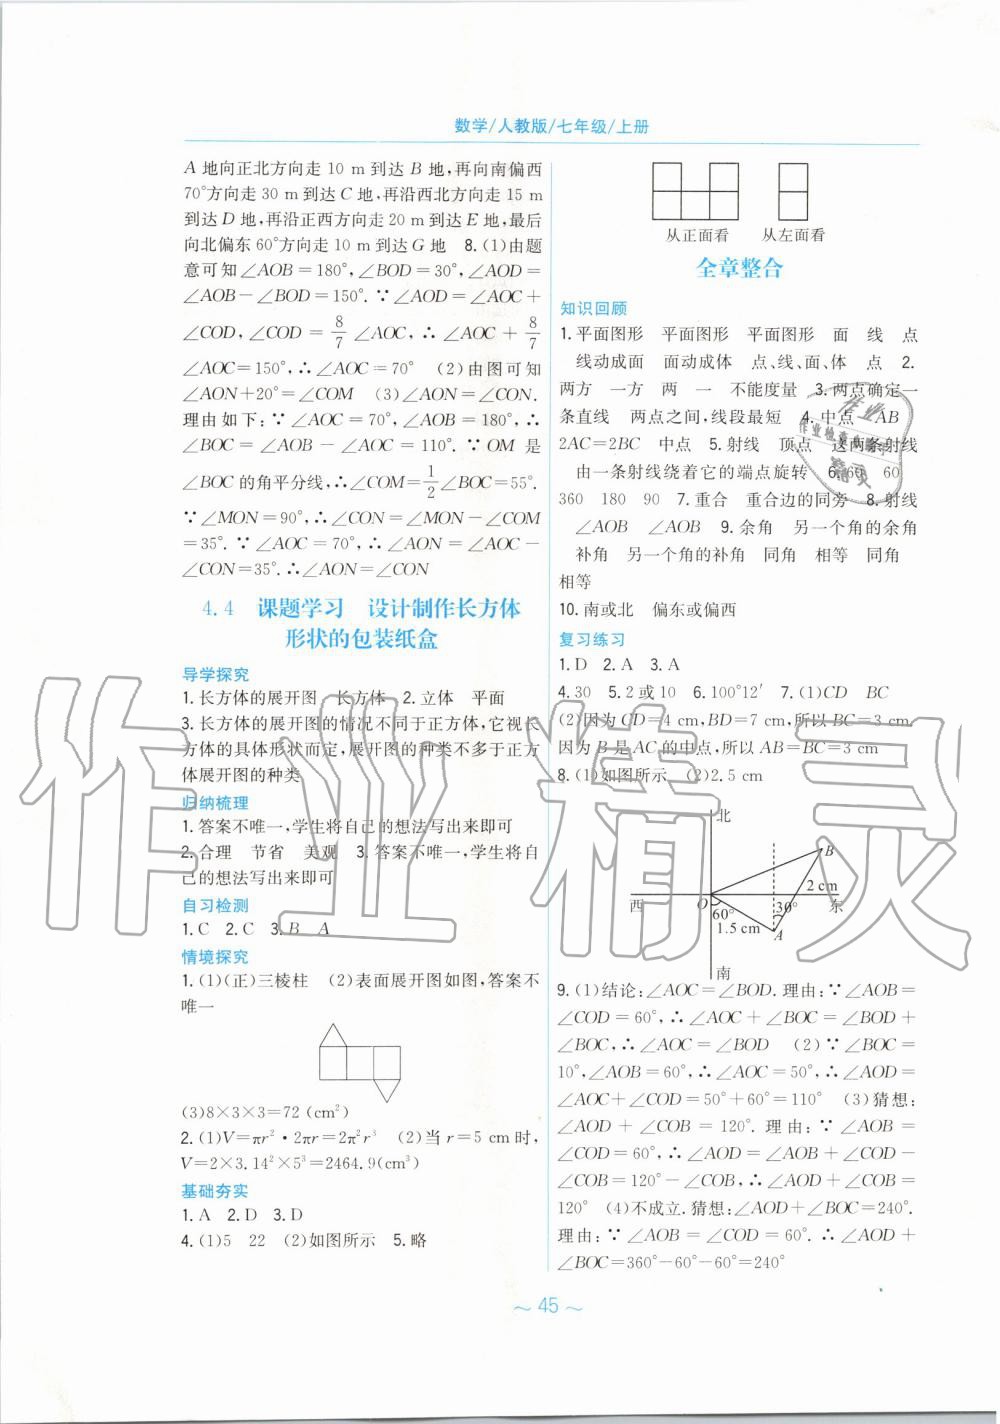 数学/人教版/七年级/上册
A 地向正北方向走 10 m 到达 B 地,再向南偏西
70°方向走 30 m 到达 C 地,再沿西北方向走 15 m
到达 D 地,再沿正西方向走 20 m 到达 E 地,最后
向北偏东 60°方向走 10 m 到达 G 地 8. (1)由题
意可知∠AOB=180°,∠BOD=30°,∠AOD=
∠AOB-∠BOD=150°. ∵∠AOD=∠AOC+
∠COD,∠COD=8/7∠AOC,∴∠AOC+8/7
∠AOC=150°,∴∠AOC=70° (2)由图可知
∠AON+20°=∠COM (3)∠AON=∠CON.
理由如下:∵∠AOC=70°,∠AOB=180°,∴
∠BOC=∠AOB-∠AOC=110°. ∵OM 是
∠BOC 的角平分线,∴∠COM=1/2∠BOC=55°.
∵∠MON=90°,∴∠CON=∠MON-∠COM
=35°. ∵∠AOC=70°,∴∠AON=∠AOC-
∠CON=35°. ∴∠AON=∠CON
4.4 课题学习 设计制作长方体
形状的包装纸盒
导学探究
1. 长方体的展开图 长方体 2. 立体 平面
3. 长方体的展开图的情况不同于正方体,它视长
方体的具体形状而定,展开图的种类不多于正方
体展开图的种类
归纳梳理
1. 答案不唯一,学生将自己的想法写出来即可
2. 合理 节省 美观 3. 答案不唯一,学生将自
己的想法写出来即可
自习检测
1. C 2. C 3. B A
情境探究
1. (1)(正)三棱柱 (2)表面展开图如图,答案不
唯一
(3)8×3×3=72 (cm²)
2. (1)V=πr²·2πr=2π²r³ (2)当 r=5 cm 时,
V=2×3.14²×5³=2464.9(cm³)
基础夯实
1. A 2. D 3. D
4. (1)5 22 (2)如图所示 5. 略
从正面看 从左面看
全章整合
知识回顾
1. 平面图形 平面图形 平面图形 面 线 点
线动成面 面动成体 点、线、面、体 点 2.
两方 一方 两 一 不能度量 3. 两点确定一
条直线 两点之间,线段最短 4. 中点 AB
2AC=2BC 中点 5. 射线 顶点 这两条射线
由一条射线绕着它的端点旋转 6. 60 60
360 180 90 7. 重合 重合边的同旁 8. 射线
∠AOB ∠AOB 9. 余角 另一个角的余角
补角 另一个角的补角 同角 相等 同角
相等
10. 南或北 偏东或偏西
复习练习
1. D 2. A 3. A
4. 30 5. 2 或 10 6. 100°12′ 7. (1)CD BC
(2)因为 CD=4 cm,BD=7 cm,所以 BC=3 cm
因为 B 是 AC 的中点,所以 AB=BC=3 cm
8. (1)如图所示 (2)2.5 cm
北
B
2 cm
西 O 30° 东
60°
1.5 cm A
南
9. (1)结论:∠AOC=∠BOD. 理由:∵∠AOB=
∠COD=60°,∴∠AOC+∠BOC=∠BOD+
∠BOC,∴∠AOC=∠BOD (2)∵∠BOC=
10°,∠AOB=60°,∴∠AOC=50°,∴∠AOD=
∠AOC+∠COD=50°+60°=110° (3)猜想:
∠AOD+∠COB=120°. 理由:∵∠AOB=
∠COD=60°,∴∠AOD=∠AOB+∠COD-
∠COB=120°-∠COB,∴∠AOD+∠COB=
120° (4)不成立. 猜想:∠AOD+∠BOC=240°.
理由:∵∠AOB=∠COD=60°. ∴∠AOD+
∠BOC=360°-60°-60°=240°
~ 45 ~
作业精灵
作业
作业检查小帮手
精灵